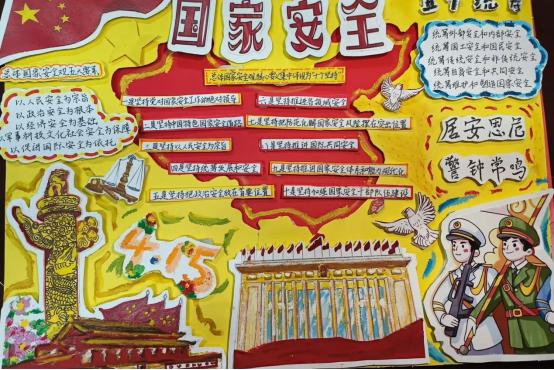 国家安全
五个统筹
总体国家安全观五大要素
以人民安全为宗旨
以政治安全为根本
以经济安全为基础
以军事科技文化社会安全为保障
以促进国际安全为依托
总体国家安全观核心要义集中体现为“十个坚持”
一是坚持党对国家安全工作的绝对领导
二是坚持中国特色国家安全道路
三是坚持以人民安全为宗旨
四是坚持统筹发展和安全
五是坚持把政治安全放在首要位置
六是坚持推进各领域安全
七是坚持把防范化解国家安全风险摆在突出位置
八是坚持推进国际共同安全
九是坚持推进国家安全体系和能力现代化
十是坚持加强国家安全干部队伍建设
统筹外部安全和内部安全
统筹国土安全和国民安全
统筹传统安全和非传统安全
统筹自身安全和共同安全
统筹维护和塑造国家安全
居安思危
警钟常鸣
4.15